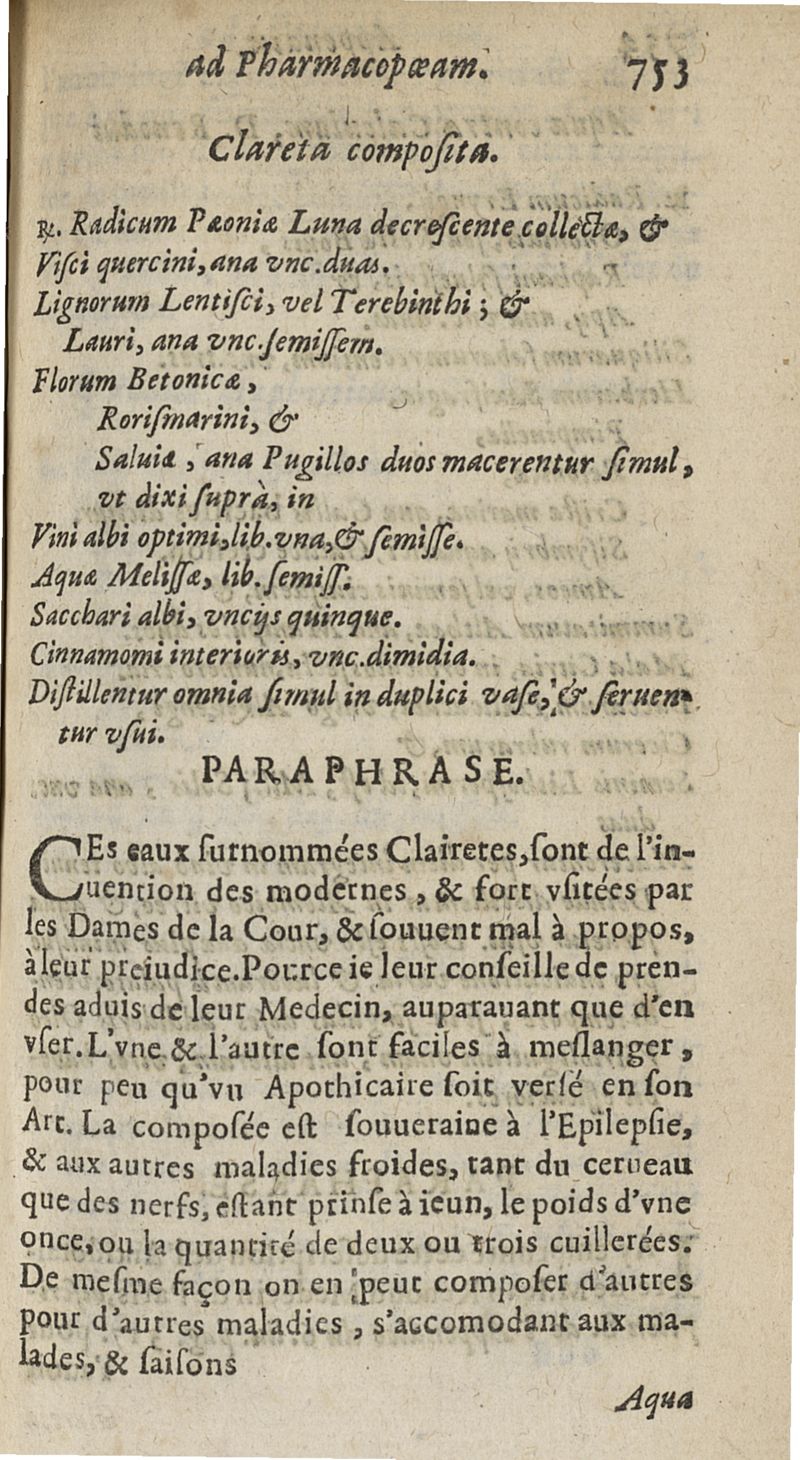 ad Pharmacopœam. 753
Clareta compoſita.
℞. Radicum Pæoniæ Luna decreſcente collectæ, &
Viſci quercini, ana vnc. duas.
Lignorum Lentiſci, vel Terebinthi ; &
Lauri, ana vnc. ſemiſſem.
Florum Betonicæ ,
Roriſmarini, &
Saluiæ , ana Pugillos duos macerentur ſimul,
vt dixi ſuprà, in
Vini albi optimi, lib. vna, & ſemiſſe.
Aquæ Meliſſæ, lib. ſemiſſ.
Sacchari albi, vncijs quinque.
Cinnamomi interioris, vnc. dimidia.
Diſtillentur omnia ſimul in duplici vaſe, & ſeruen-
tur vſui.
PARAPHRASE.
CEs eaux ſurnommées Clairetes, ſont de l'in-
uention des modernes , & fort vſitées par
les Dames de la Cour, & ſouuent mal à propos,
à leur preiudice. Pource ie leur conſeille de pren-
des aduis de leur Medecin, auparauant que d'en
vſer. L'vne & l'autre ſont faciles à meſlanger ,
pour peu qu'vn Apothicaire ſoit verſé en ſon
Art. La compoſée eſt ſouueraine à l'Epilepſie,
& aux autres maladies froides, tant du cerueau
que des nerfs, eſtant prinſe à ieun, le poids d'vne
once, ou la quantité de deux ou trois cuillerées.
De meſme façon on en peut compoſer d'autres
pour d'autres maladies , s'accomodant aux ma-
lades, & ſaiſons
Aqua